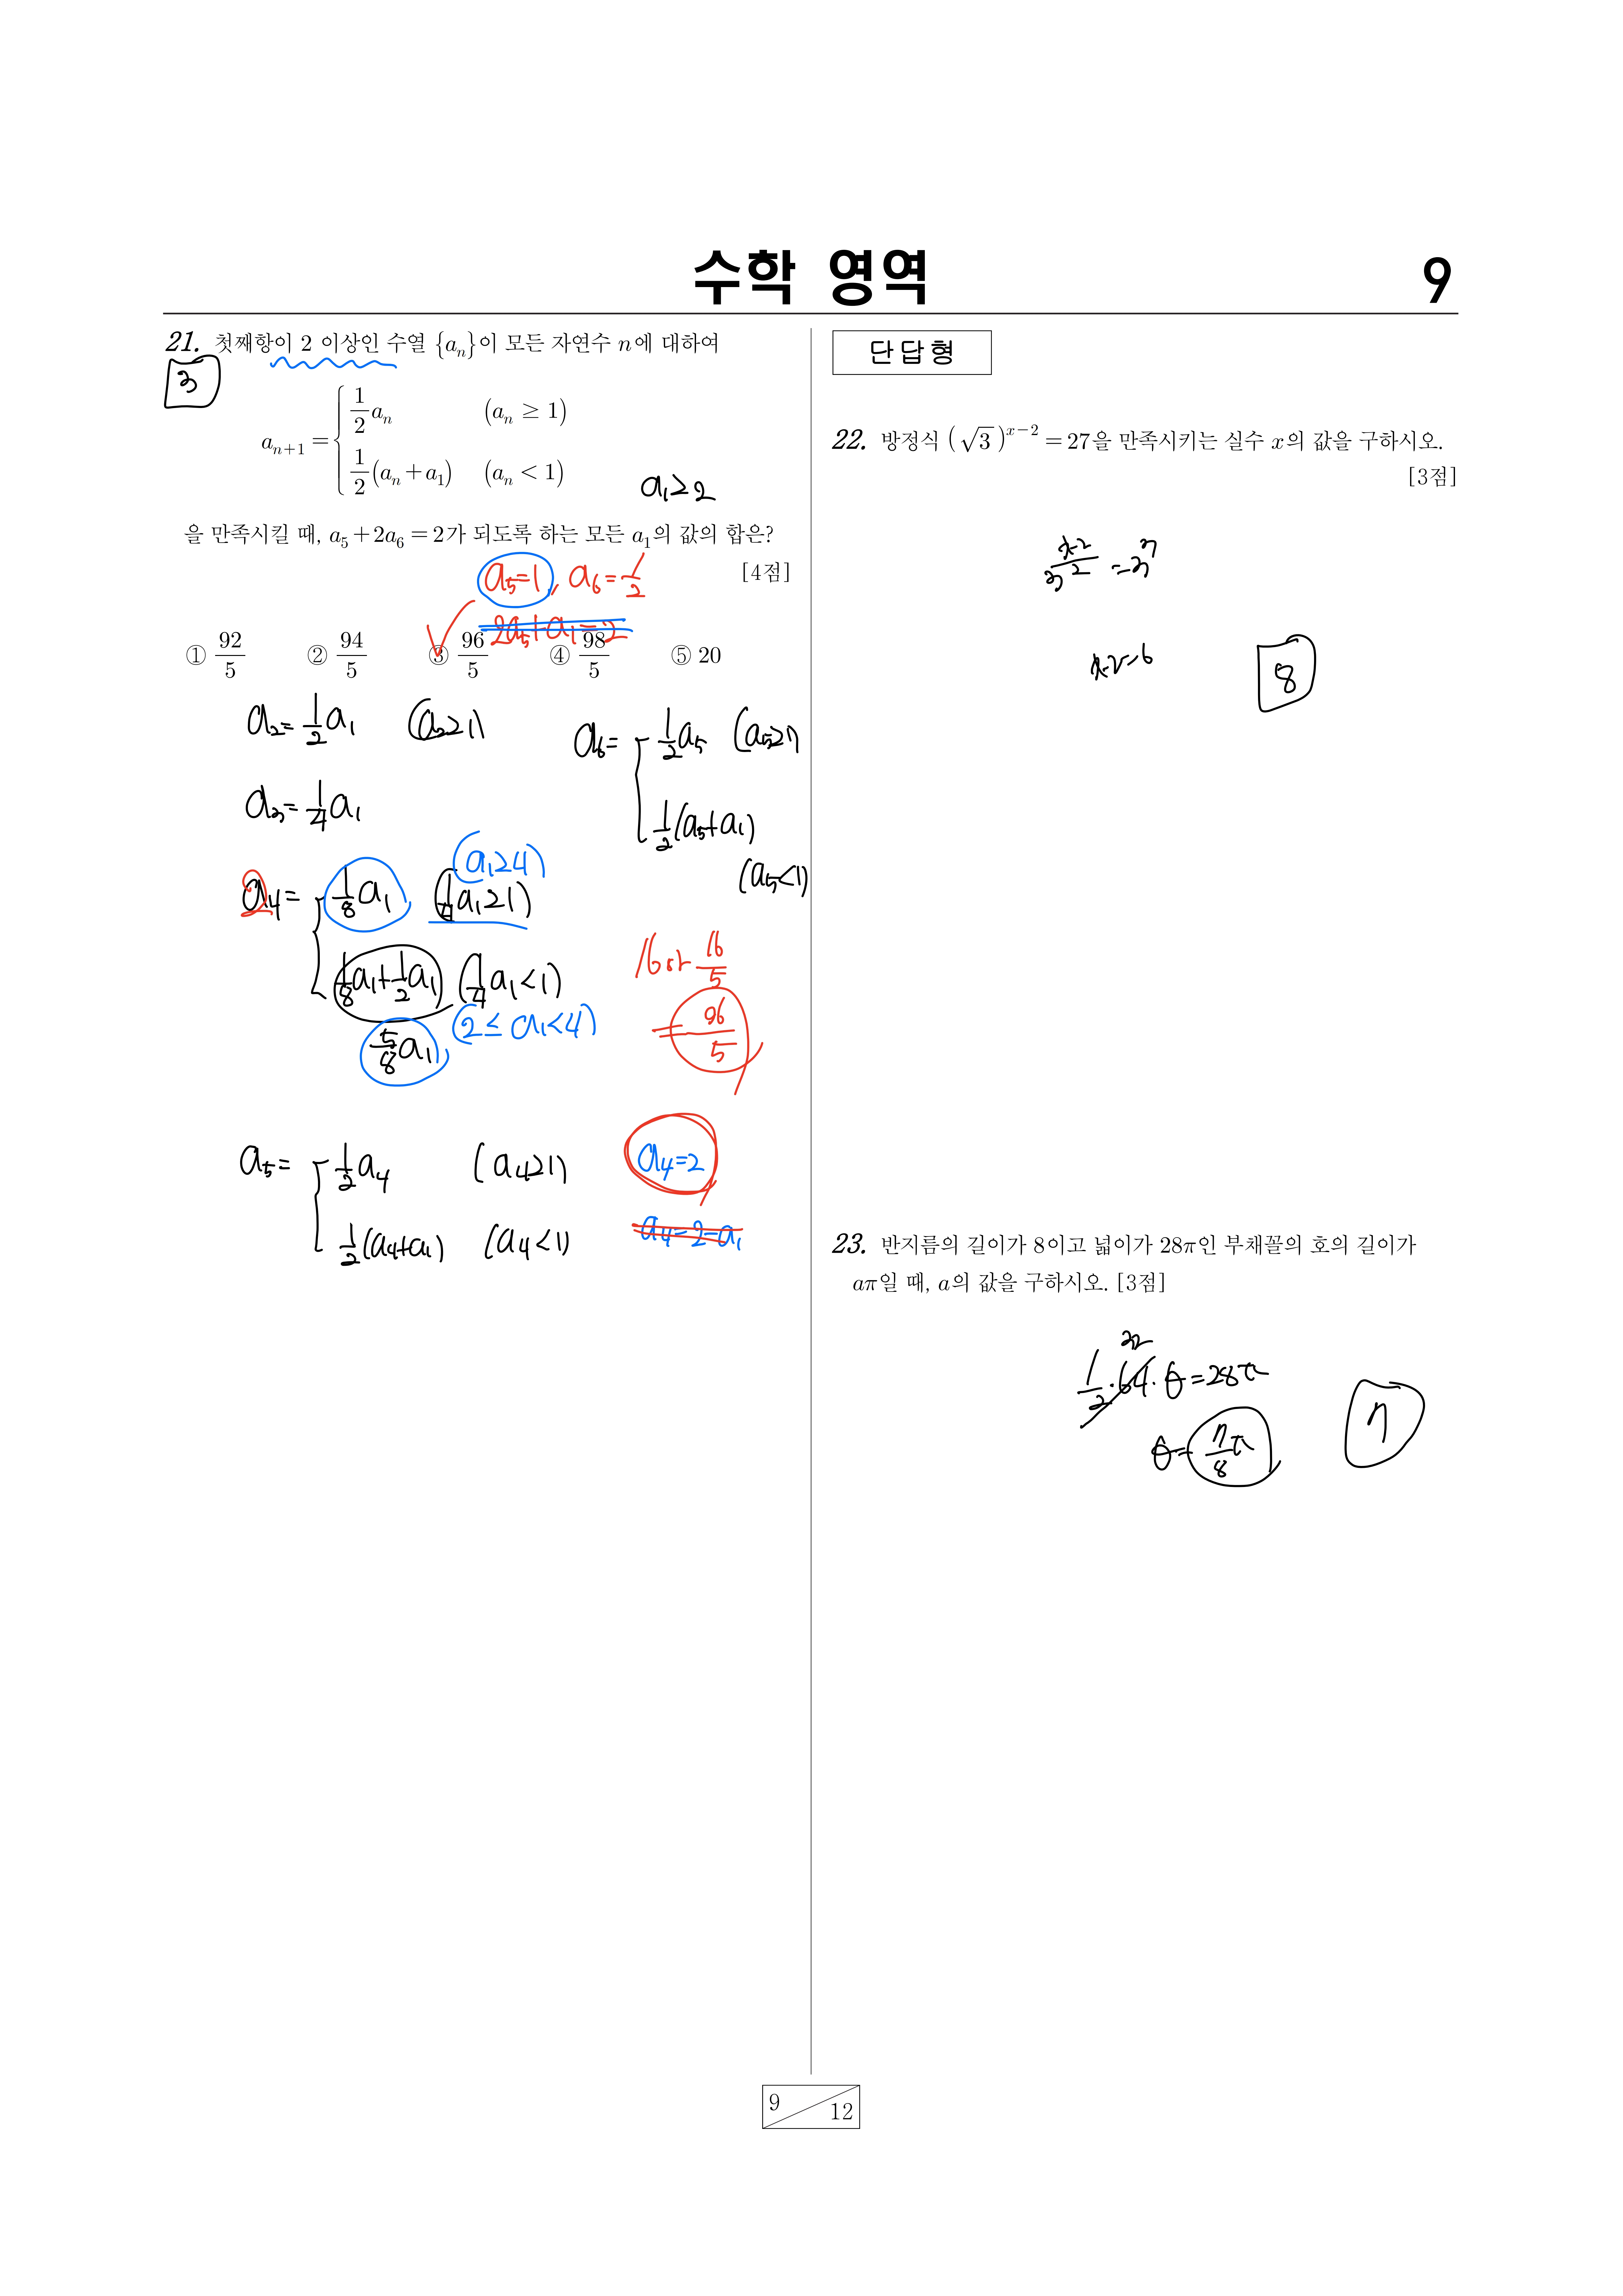 수학 영역
9
21. 첫째항이 2 이상인 수열 {aₙ}이 모든 자연수 n에 대하여
3
aₙ₊₁ = { 1/2 aₙ (aₙ ≥ 1)
1/2 (aₙ + a₁) (aₙ < 1)
a₁≥2
을 만족시킬 때, a₅ + 2a₆ = 2가 되도록 하는 모든 a₁의 값의 합은?
[4점]
a₅=1, a₆=1/2
2a₅+a₁=2
① 92/5 ② 94/5 ③ 96/5 ④ 98/5 ⑤ 20
a₂= 1/2 a₁ (a₂≥1)
a₃= 1/4 a₁
a₆= 1/2 a₅ (a₅≥1)
1/2 (a₅+a₁)
(a₅<1)
(a₁≥4)
2
a₄= 1/8 a₁ (1/4 a₁≥1)
1/8 a₁+1/2 a₁ (1/4 a₁<1)
(2≤a₁<4)
5/8 a₁
16 or 16/5
= 96/5
a₅= 1/2 a₄ (a₄≥1) a₄=2
1/2 (a₄+a₁) (a₄<1) a₄=2-a₁
단답형
22. 방정식 (√3)ˣ⁻² = 27을 만족시키는 실수 x의 값을 구하시오.
[3점]
3^((x-2)/2) = 3³
x-2=6
8
23. 반지름의 길이가 8이고 넓이가 28π인 부채꼴의 호의 길이가
aπ일 때, a의 값을 구하시오. [3점]
32
1/2·64·θ=28π
θ= 7/8 π
7
9 / 12